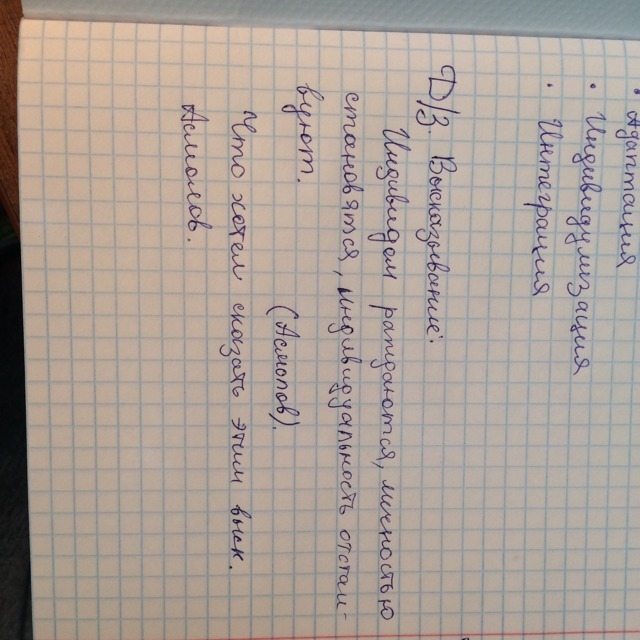 • Адаптация
• Индивидулизация
• Интеграция
Д/З. Высказывание:
Индивидом рождаются, личностью
становятся, индивидуальность отстаи-
вуют.
(Асмолов).
Что хотел сказать этим выск.
Асмолов.